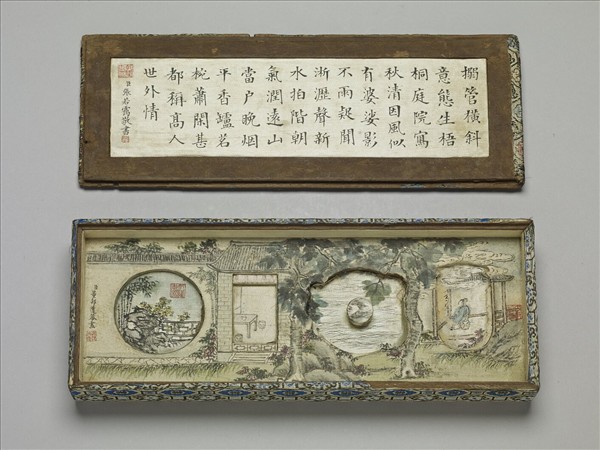 搦管橫斜
意態生梧
桐庭院寫
秋清因風似
有婆娑影
不雨疑聞
淅瀝聲新
水拍階朝
氣潤遠山
當戶晚烟
平香罏名
椀蕭閑甚
都稱高人
世外情
臣張若靄敬書
臣董邦達恭畫